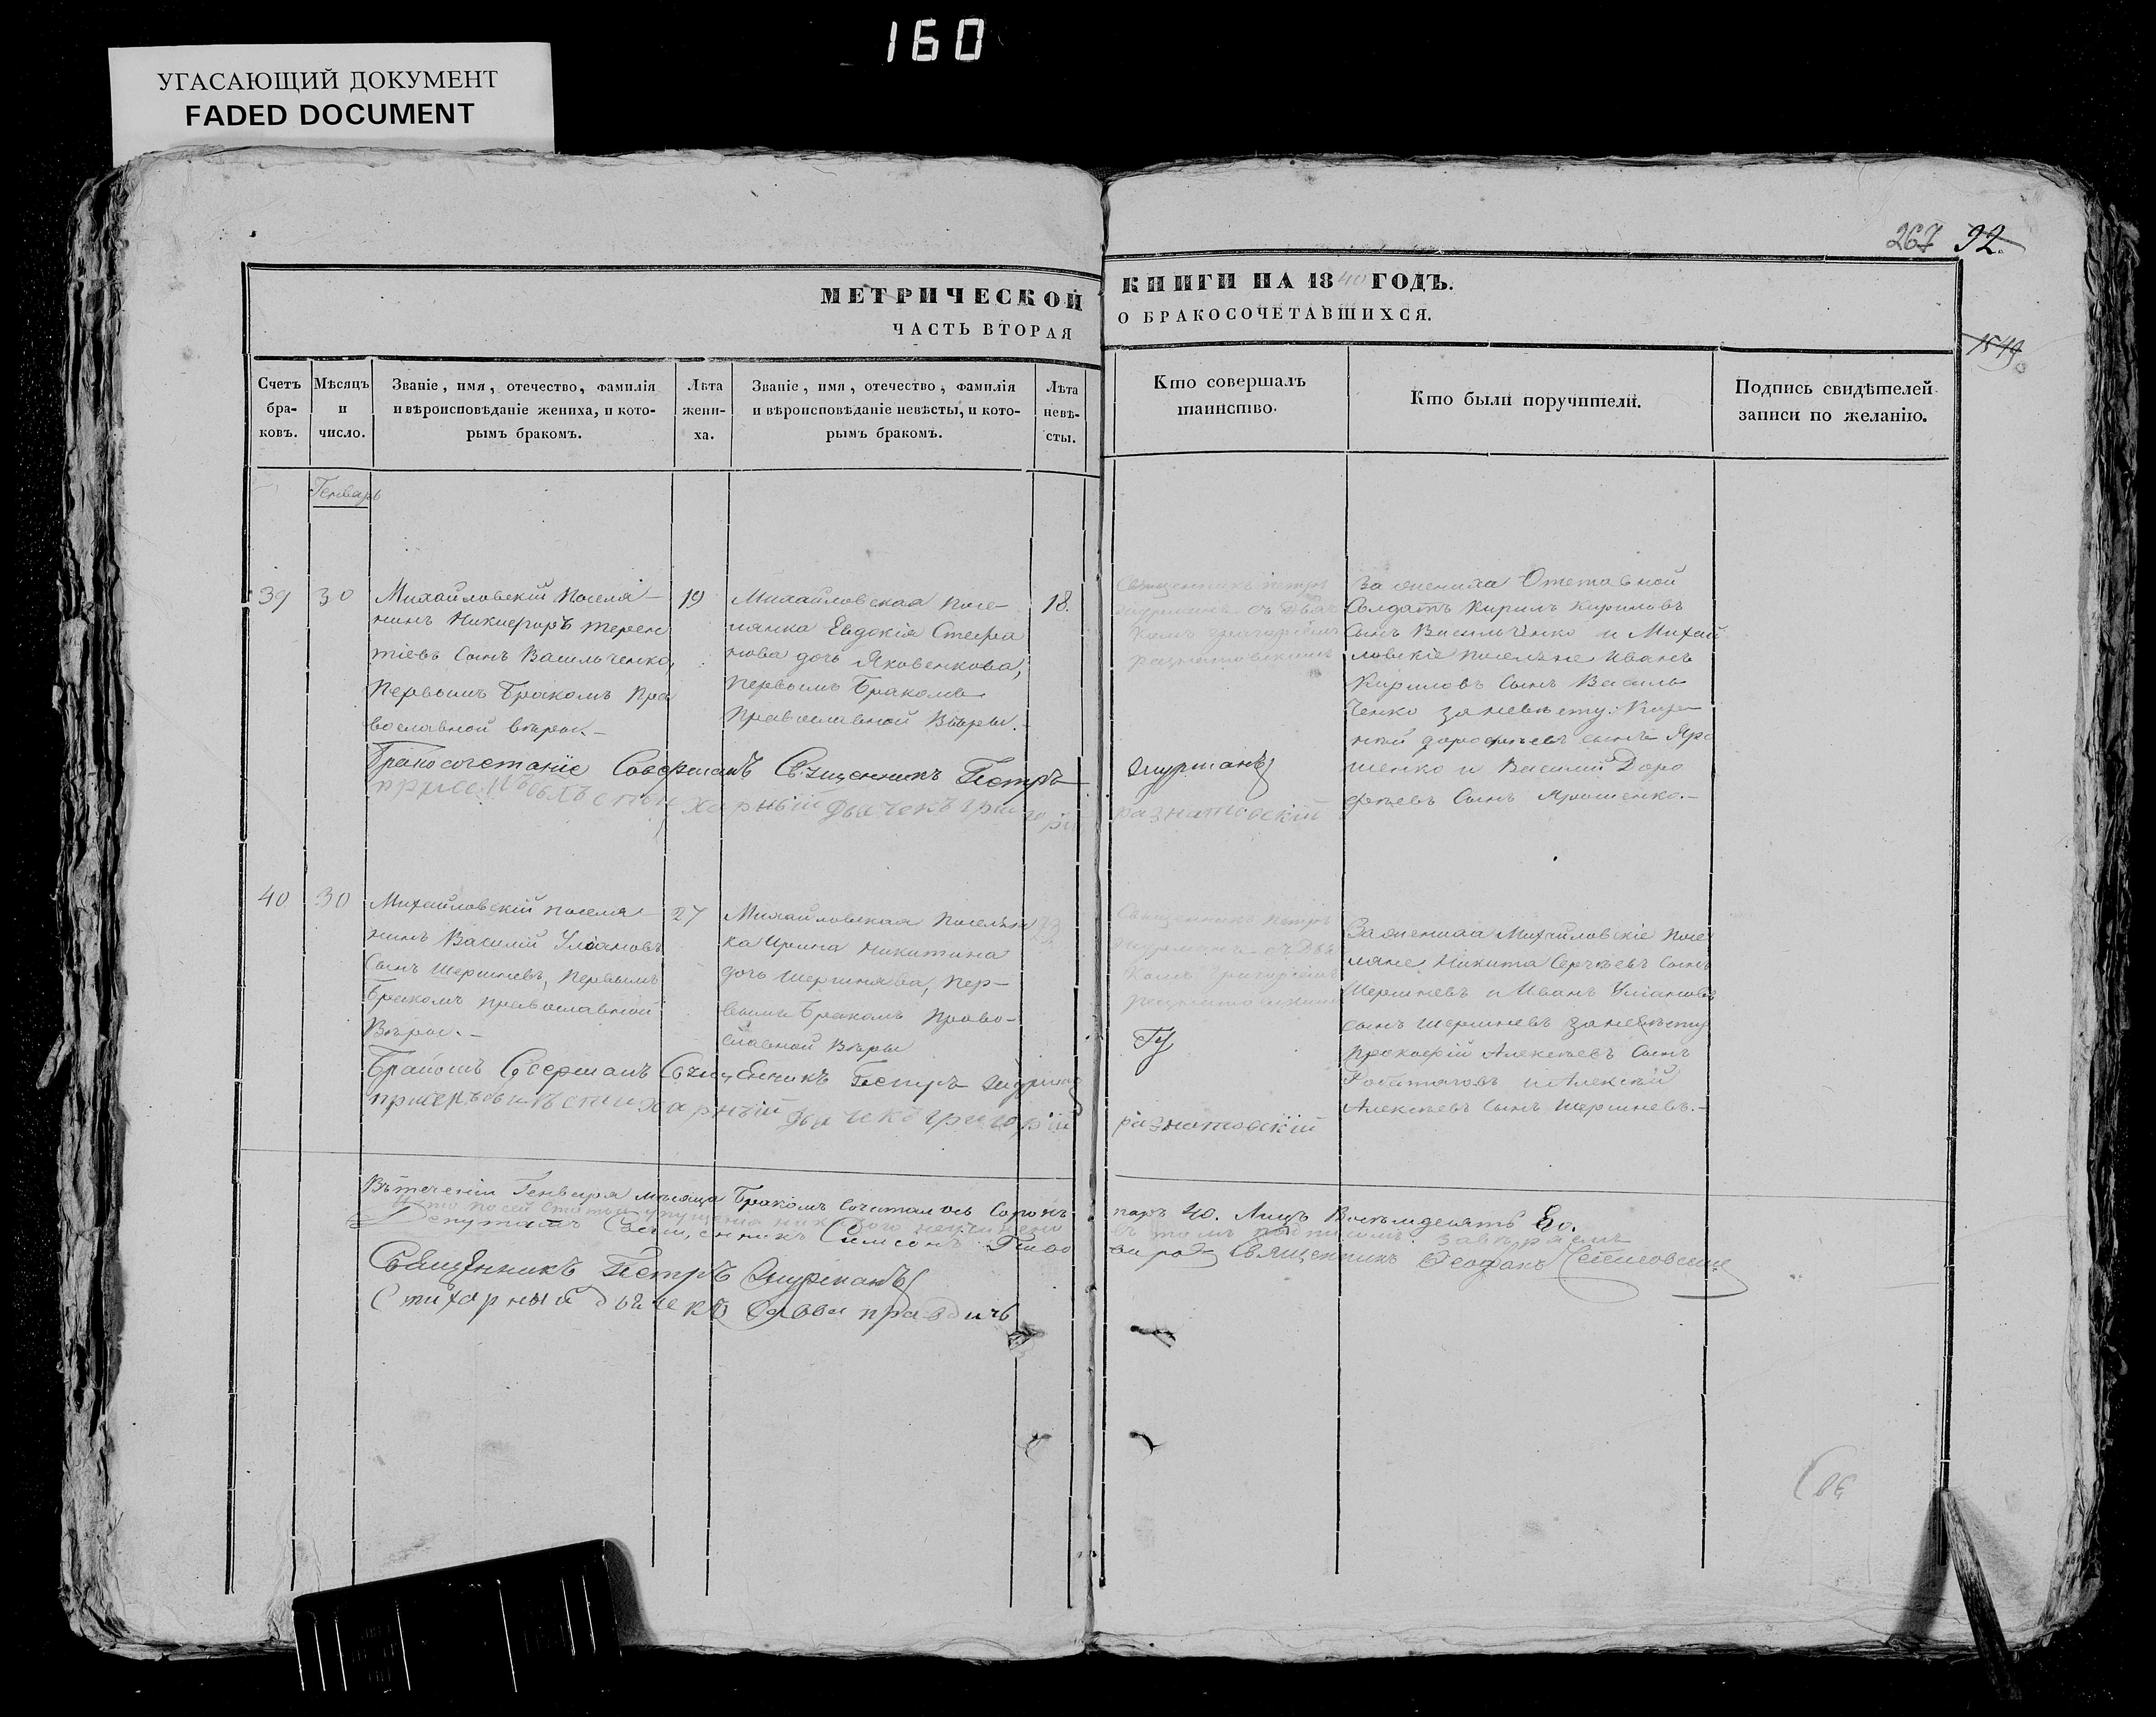 160
УГАСАЮЩИЙ ДОКУМЕНТ
FADED DOCUMENT
267 92.
1519
МЕТРИЧЕСКОЙ КНИГИ НА 1840 ГОДЪ.
ЧАСТЬ ВТОРАЯ О БРАКОСОЧЕТАВШИХСЯ.
Счетъ
бра-
ковъ.
Мѣсяцъ
и
число.
Званіе, имя, отечество, фамилія
и вѣроисповѣданіе жениха, и кото-
рымъ бракомъ.
Лѣта
жени-
ха.
Званіе, имя, отечество, фамилія
и вѣроисповѣданіе невѣсты, и кото-
рымъ бракомъ.
Лѣта
невѣ-
сты.
Кто совершалъ
таинство.
Кто были поручители.
Подпись свидѣтелей
записи по желанію.
Генварь
39
30
Михайловскій поселя-
нинъ Никифоръ терен
тіевъ сынъ Васильченко,
первымъ бракомъ пра
вославной вѣры.-
19
Михайловская посе-
лянка Евдокія Стефа
нова дочь Яковенкова,
первымъ бракомъ
православной вѣры.-
18.
Священникъ петръ
съ дьяч
комъ григоріемъ
разнатовскимъ
за жениха Отставной
солдатъ Кирилъ Кириловъ
сынъ Васильченко и Михай
ловскіе поселяне Иванъ
Кириловъ сынъ Василь
ченко за невѣсту:
дорофѣевъ сынъ Яро
шенко и Василій Доро
фѣевъ сынъ Ярошенко.-
Бракосочетаніе Совершалъ Священникъ Петръ
при семъ былъ стихарный дьячекъ григорій
разнатовскій
40
30
Михайловскій поселя-
нинъ Василій Уліановъ
сынъ Шершневъ, первымъ
бракомъ православной
вѣры.-
27
Михайловская поселян
ка Ирина Никитина
дочь пер-
вымъ бракомъ право-
славной вѣры
Священникъ петръ
съ дья
комъ григоріемъ
разнатовскимъ
За жениха Михайловскіе посе
ляне Никита Сергѣевъ сынъ
Шершневъ и Иванъ Уліановъ
сынъ Шершневъ за невѣсту
Прокофій Алексѣевъ сынъ
и Алексѣй
Алексѣевъ сынъ Шершневъ.-
Бракъ Совершалъ Священникъ Петръ
при семъ былъ стихарный дьячекъ григорій
разнатовскій
Въ теченіи Генваря мѣсяца бракомъ сочиталось сорокъ паръ 40. Лицъ восемьдесятъ 80.
что по сей статьи упущенія никакого неучинено въ томъ подписомъ завѣряемъ
Депутатъ Священникъ Симеонъ
Священникъ Феофанъ
Священникъ Петръ
Стихарный дьячекъ Савва правдичъ